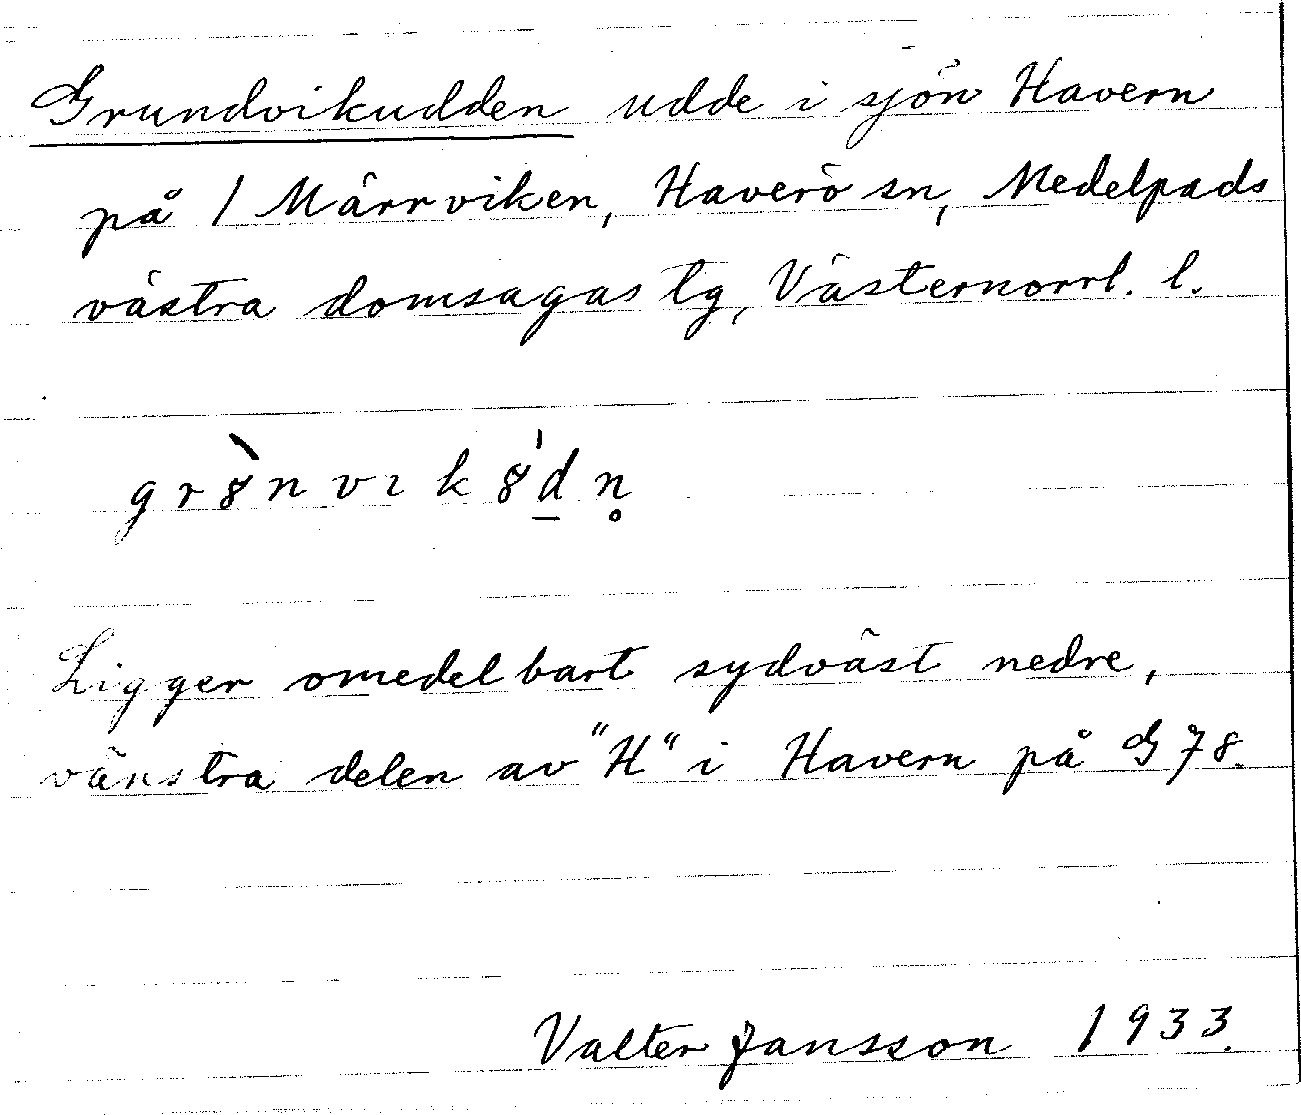 Grundvikudden udde i sjön Havern
på 1 Märrviken, Haverö sn, Medelpads
västra domsagas tg, Västernorrl. l.
gr8̀nvık8̍d̲n̥
Ligger omedelbart sydväst nedre,
vänstra delen av "H" i Havern på G 78.
Valter Jansson 1933.